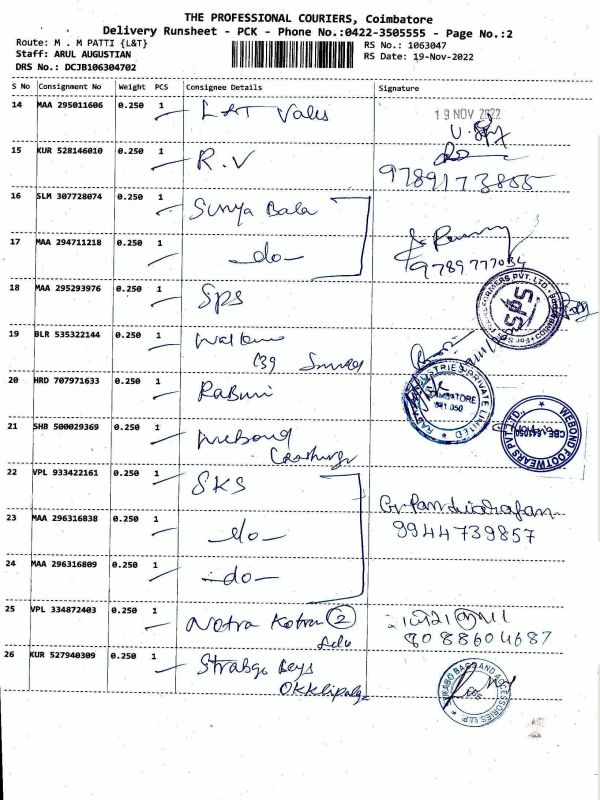 THE PROFESSIONAL COURIERS, Coimbatore
Delivery Runsheet - PCK - Phone No.:0422-3505555 - Page No.:2
Route: M . M PATTI {L&T}
RS No.: 1063047
Staff: ARUL AUGUSTIAN
RS Date: 19-Nov-2022
DRS No.: DCJB106304702
S No Consignment No Weight PCS Consignee Details Signature
14 MAA 295011606 0.250 1 L&T Valves
19 NOV 2022
15 KUR 528146010 0.250 1 R.V
9789173855
16 SLM 307728074 0.250 1 Surya Bala
17 MAA 294711218 0.250 1 -do-
9789777034
18 MAA 295293976 0.250 1 SPS
SPS
19 BLR 535322144 0.250 1
20 HRD 707971633 0.250 1
PRIVATE LIMITED
COIMBATORE
641 050
21 SHB 500029369 0.250 1 Webond
WEBOND FOOTWEARS PVT LTD.,
CBE-641050
22 VPL 933422161 0.250 1 SKS
23 MAA 296316838 0.250 1 -do-
9944739857
24 MAA 296316809 0.250 1 -do-
25 VPL 334872403 0.250 1 2
8088604687
26 KUR 527940309 0.250 1
BAGS AND ACCESSORIES LLP